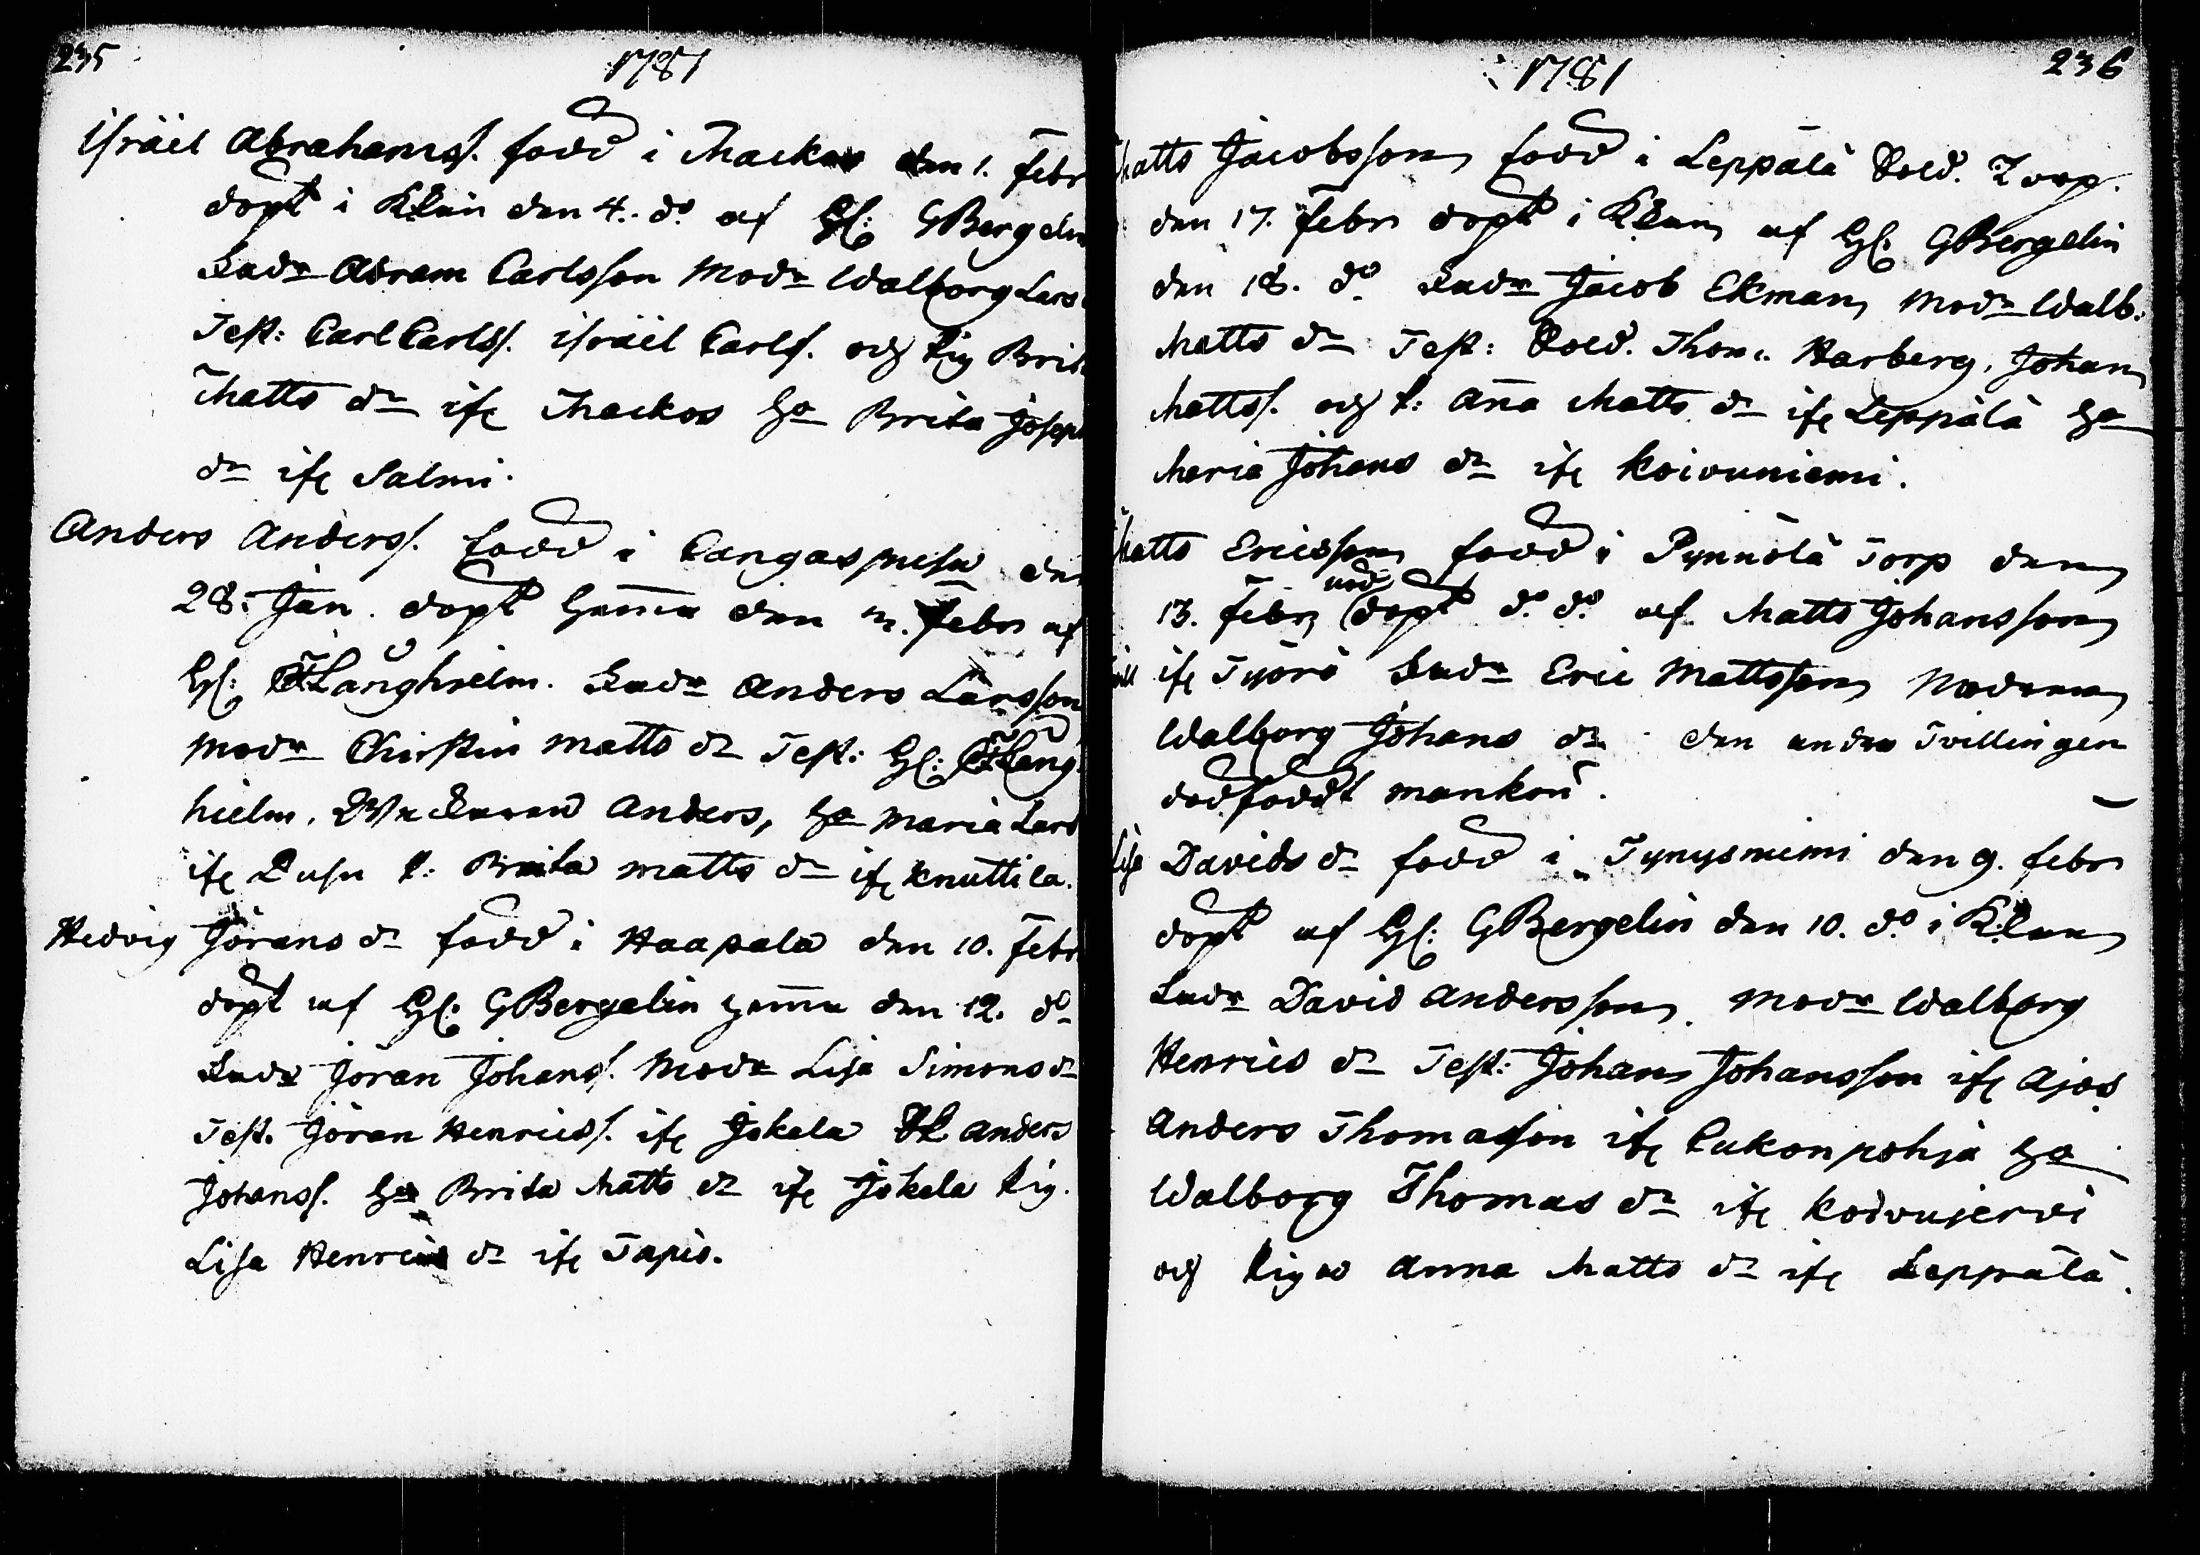 235
1781
Isräel Abrahamss. född i Mackos den 1. Febr
döpt i K:kan den 4. do af H: GBergelin
Fadr Abram Carlsson Modr Walborg Lars
Test: Carl Carlss. isräel Carls. och pig Brita
Matts dr ifr Mackos ha Brita Joseph
dr ifr Salmi.
Anders Anderss. född i Cangas den
28. Jan. döpt hemma den 2. Febr af
H: Långhielm. Fadr Anders Larsson
Modr Chirstin Matts dr Test: H: Lång
hielm. Anders, ha Maria Lars
ifr p: Brita Matts dr ifr Knuttila.
Hedvig Jörans dr född i Haapala den 10. Febr
döpt af H: GBergelin hemma den 12. do
Fadr Jöran Johanss. Modr Lisa Simons dr
Test. Jöran Henricss. ifr Jokela Anders
Johanss. ha Brita Matts dr ifr Jokela pig.
Lisa Henrics dr ifr Tapio.
236
1781
Matts Jacobsson född i Leppälä Sold. Torp.
den 17. Febr döpt i K:kan af H: GBergelin
den 18. do Fadr Jacob Ekman Modr Walb.
Matts dr Test: Sold. Thom. Harberg, Johan
Mattss. och p: Anna Matts dr ifr Leppälä ha
Maria Johans dr ifr Koivuniemi.
Matts Ericsson född i Pynnölä Torp den
13. Febr nöd döpt do do af Matts Johansson
ifr Työrö Fadr Eric Mattsson Modren
Walborg Johans dr den andra Tvillingen
dödföddt mankön.
Lisa Davids dr född i Tynysniemi den 9. febr
döpt af H: GBergelin den 10. do i K:kan
Fadr David Andersson. Modr Walborg
Henrics dr Test: Johan Johansson ifr Ajos
Anders Thomasson ifr Cukonpohja ha
Walborg Thomas dr ifr Koivujervi
och pigo Anna Matts dr ifr Leppälä.